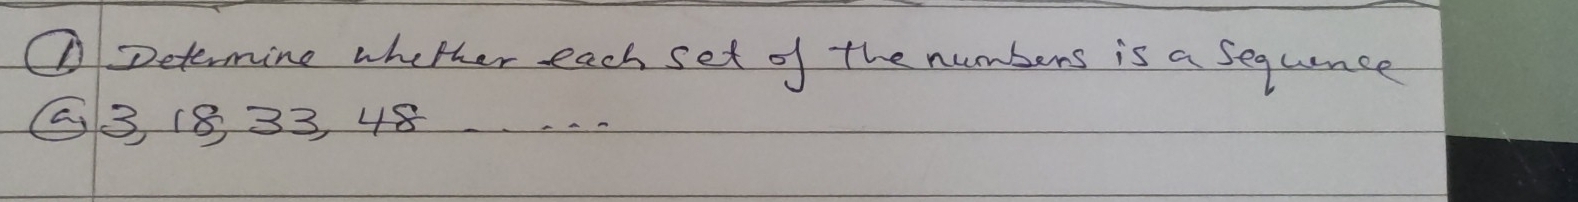 ① Determine whether each set of the numbers is a sequence
ⓐ 3, 18, 33, 48 ......